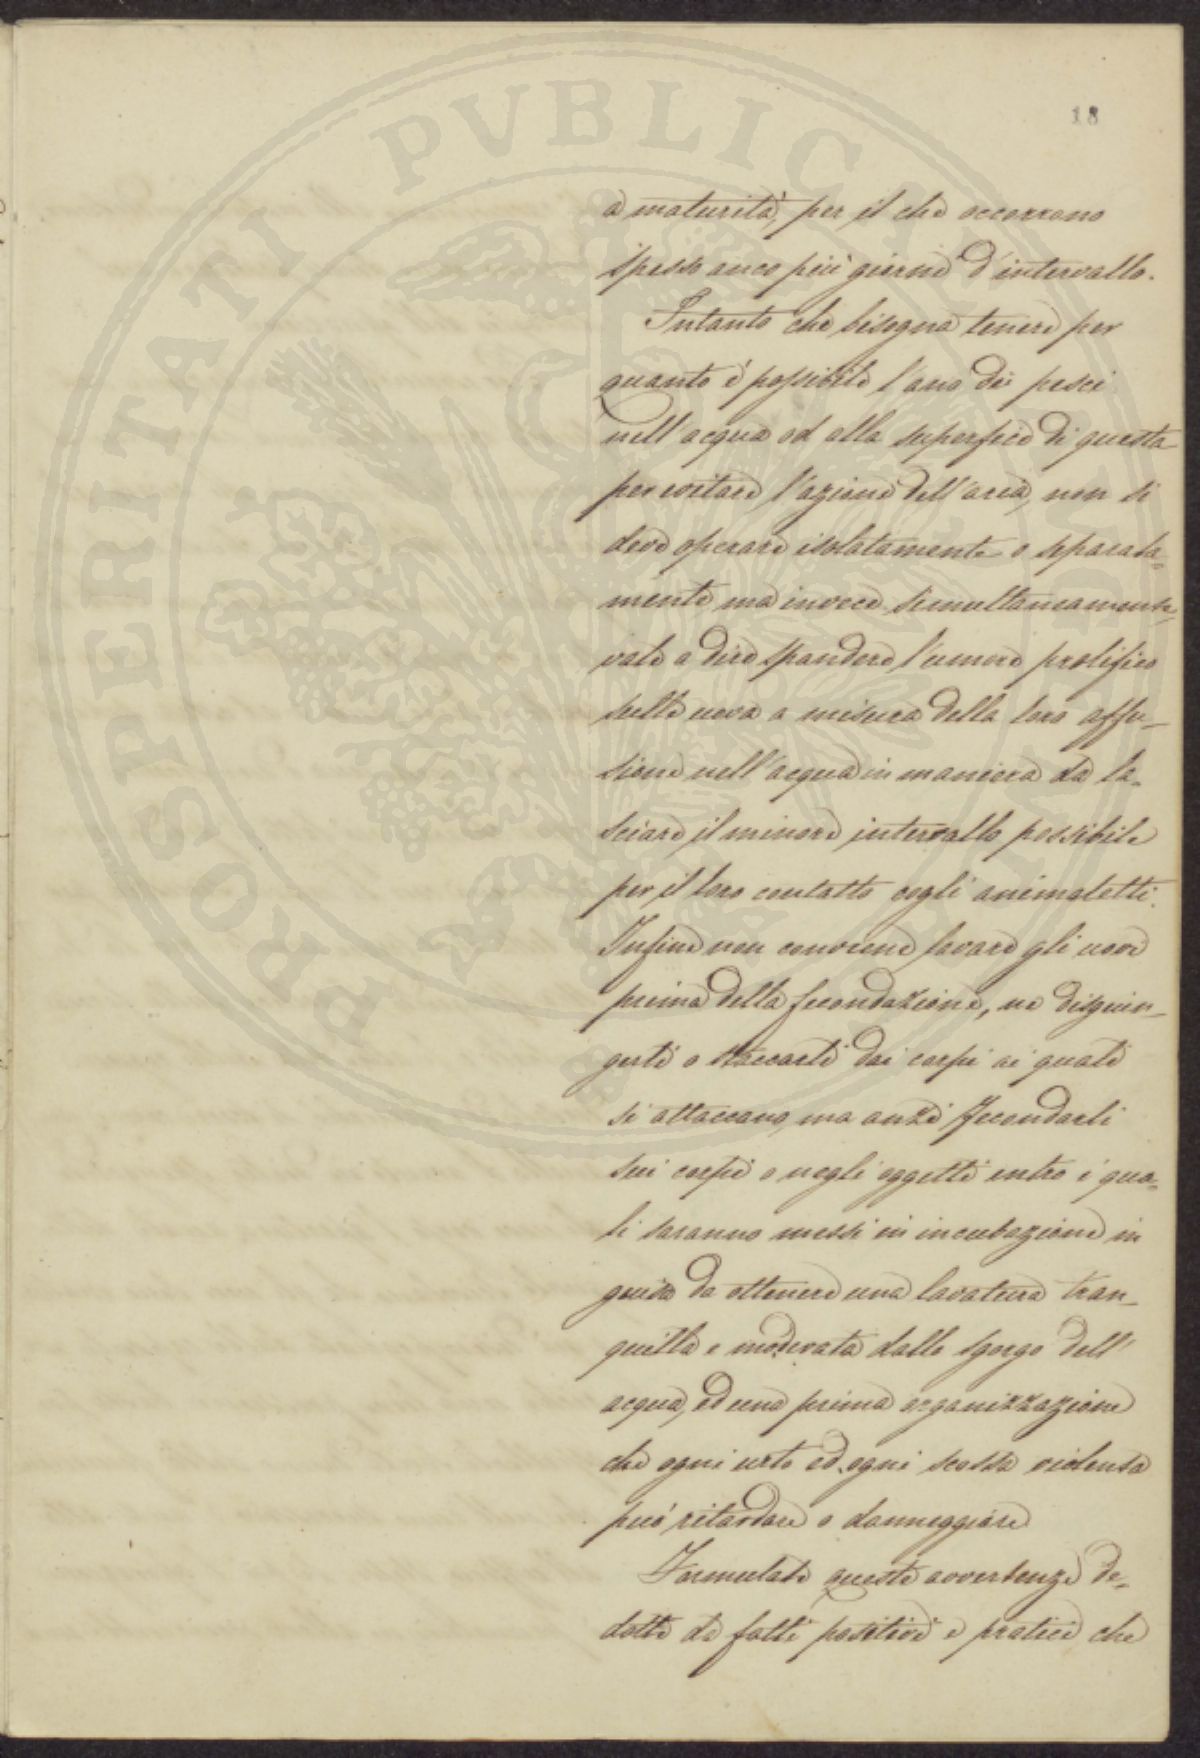 PROSPERITATI PVBLICAE
18
a maturità, per il che occorrono
spesso anco più giorni d'intervallo.
Intanto che bisogna tenere per
quanto è possibile l'ano dei pesci
nell'acqua od alla superficie di questa
per evitare l'azione dell'aria, non si
deve operare isolatamente o separata=
mente ma invece simultaneamente,
vale a dire spandere l'umore prolifico
sulle uova a misura della loro affu-
sione nell'acqua in maniera da la-
sciare il minore intervallo possibile
per il loro contatto cogli animaletti.
Infine non conviene lavare gli uovi
prima della fecondazione, ne disgiun-
gerli o staccarli dai corpi ai quali
si attaccano, ma anzi fecondarli
sui corpi o negli oggetti entro i qua-
li saranno messi in incubazione in
guisa da ottenere una lavatura tran-
quilla e moderata dallo sgorgo dell'
acqua, ed una prima organizzazione
che ogni urto ed ogni scossa violenta
può ritardare o danneggiare
Formulate queste avvertenze de-
dotte da fatti positivi e pratici che